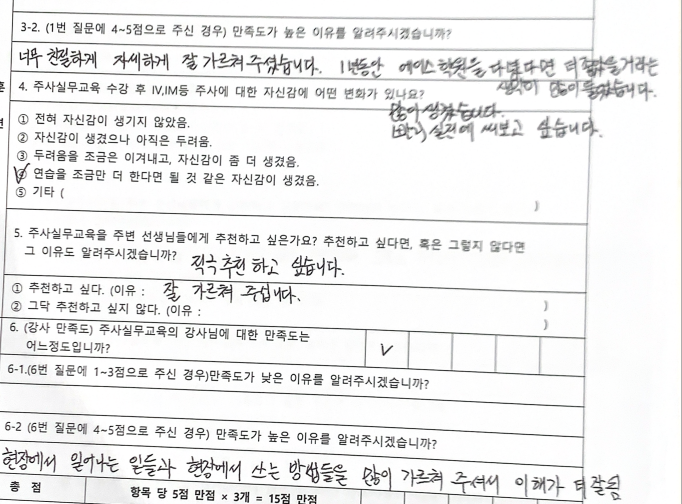 3-2. (1번 질문에 4~5점으로 주신 경우) 만족도가 높은 이유를 알려주시겠습니까?
너무 친절하게 자세하게 잘 가르쳐 주셨습니다. 1년동안 에이스학원을 다녔다면 더 좋았을거라는
생각이 많이 들었습니다.
4. 주사실무교육 수강 후 IV,IM등 주사에 대한 자신감에 어떤 변화가 있나요?
많이 생겼습니다.
빨리 실전에 써보고 싶습니다.
① 전혀 자신감이 생기지 않았음.
② 자신감이 생겼으나 아직은 두려움.
③ 두려움을 조금은 이겨내고, 자신감이 좀 더 생겼음.
④ 연습을 조금만 더 한다면 될 것 같은 자신감이 생겼음.
⑤ 기타 ( )
5. 주사실무교육을 주변 선생님들에게 추천하고 싶은가요? 추천하고 싶다면, 혹은 그렇지 않다면
그 이유도 알려주시겠습니까? 적극 추천하고 싶습니다.
① 추천하고 싶다. (이유 : 잘 가르쳐 주십니다. )
② 그닥 추천하고 싶지 않다. (이유 : )
6. (강사 만족도) 주사실무교육의 강사님에 대한 만족도는
어느정도입니까? V
6-1.(6번 질문에 1~3점으로 주신 경우)만족도가 낮은 이유를 알려주시겠습니까?
6-2 (6번 질문에 4~5점으로 주신 경우) 만족도가 높은 이유를 알려주시겠습니까?
현장에서 일어나는 일들과 현장에서 쓰는 방법들을 많이 가르쳐 주셔서 이해가 더 잘됨
총 점 항목 당 5점 만점 × 3개 = 15점 만점